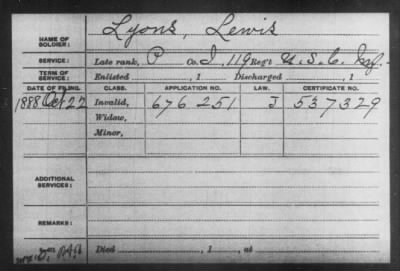 NAME OF SOLDIER: Lyons, Lewis
SERVICE: Late rank, P Co. I, 119 Regt U.S.C. Inf.
TERM OF SERVICE: Enlisted , 1 Discharged , 1
DATE OF FILING. CLASS. APPLICATION NO. LAW. CERTIFICATE NO.
1888 Oct 22 Invalid, 676 251 J 537329
Widow,
Minor,
ADDITIONAL SERVICES:
REMARKS:
Died , 1 , at